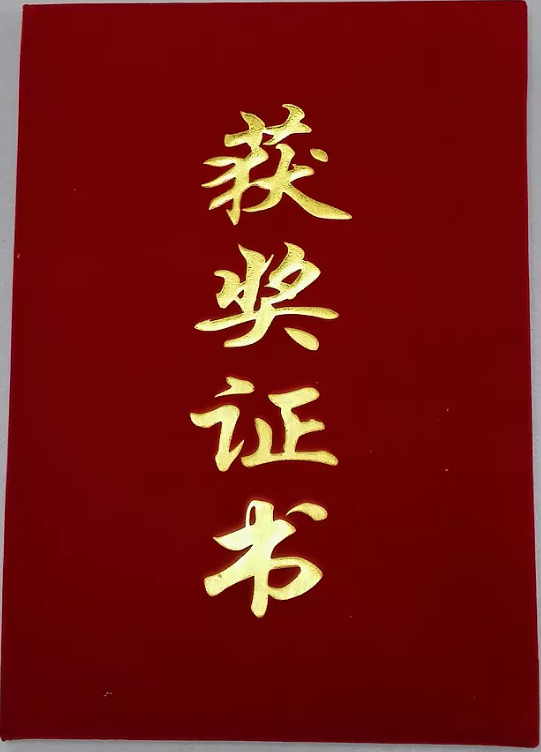 获奖证书